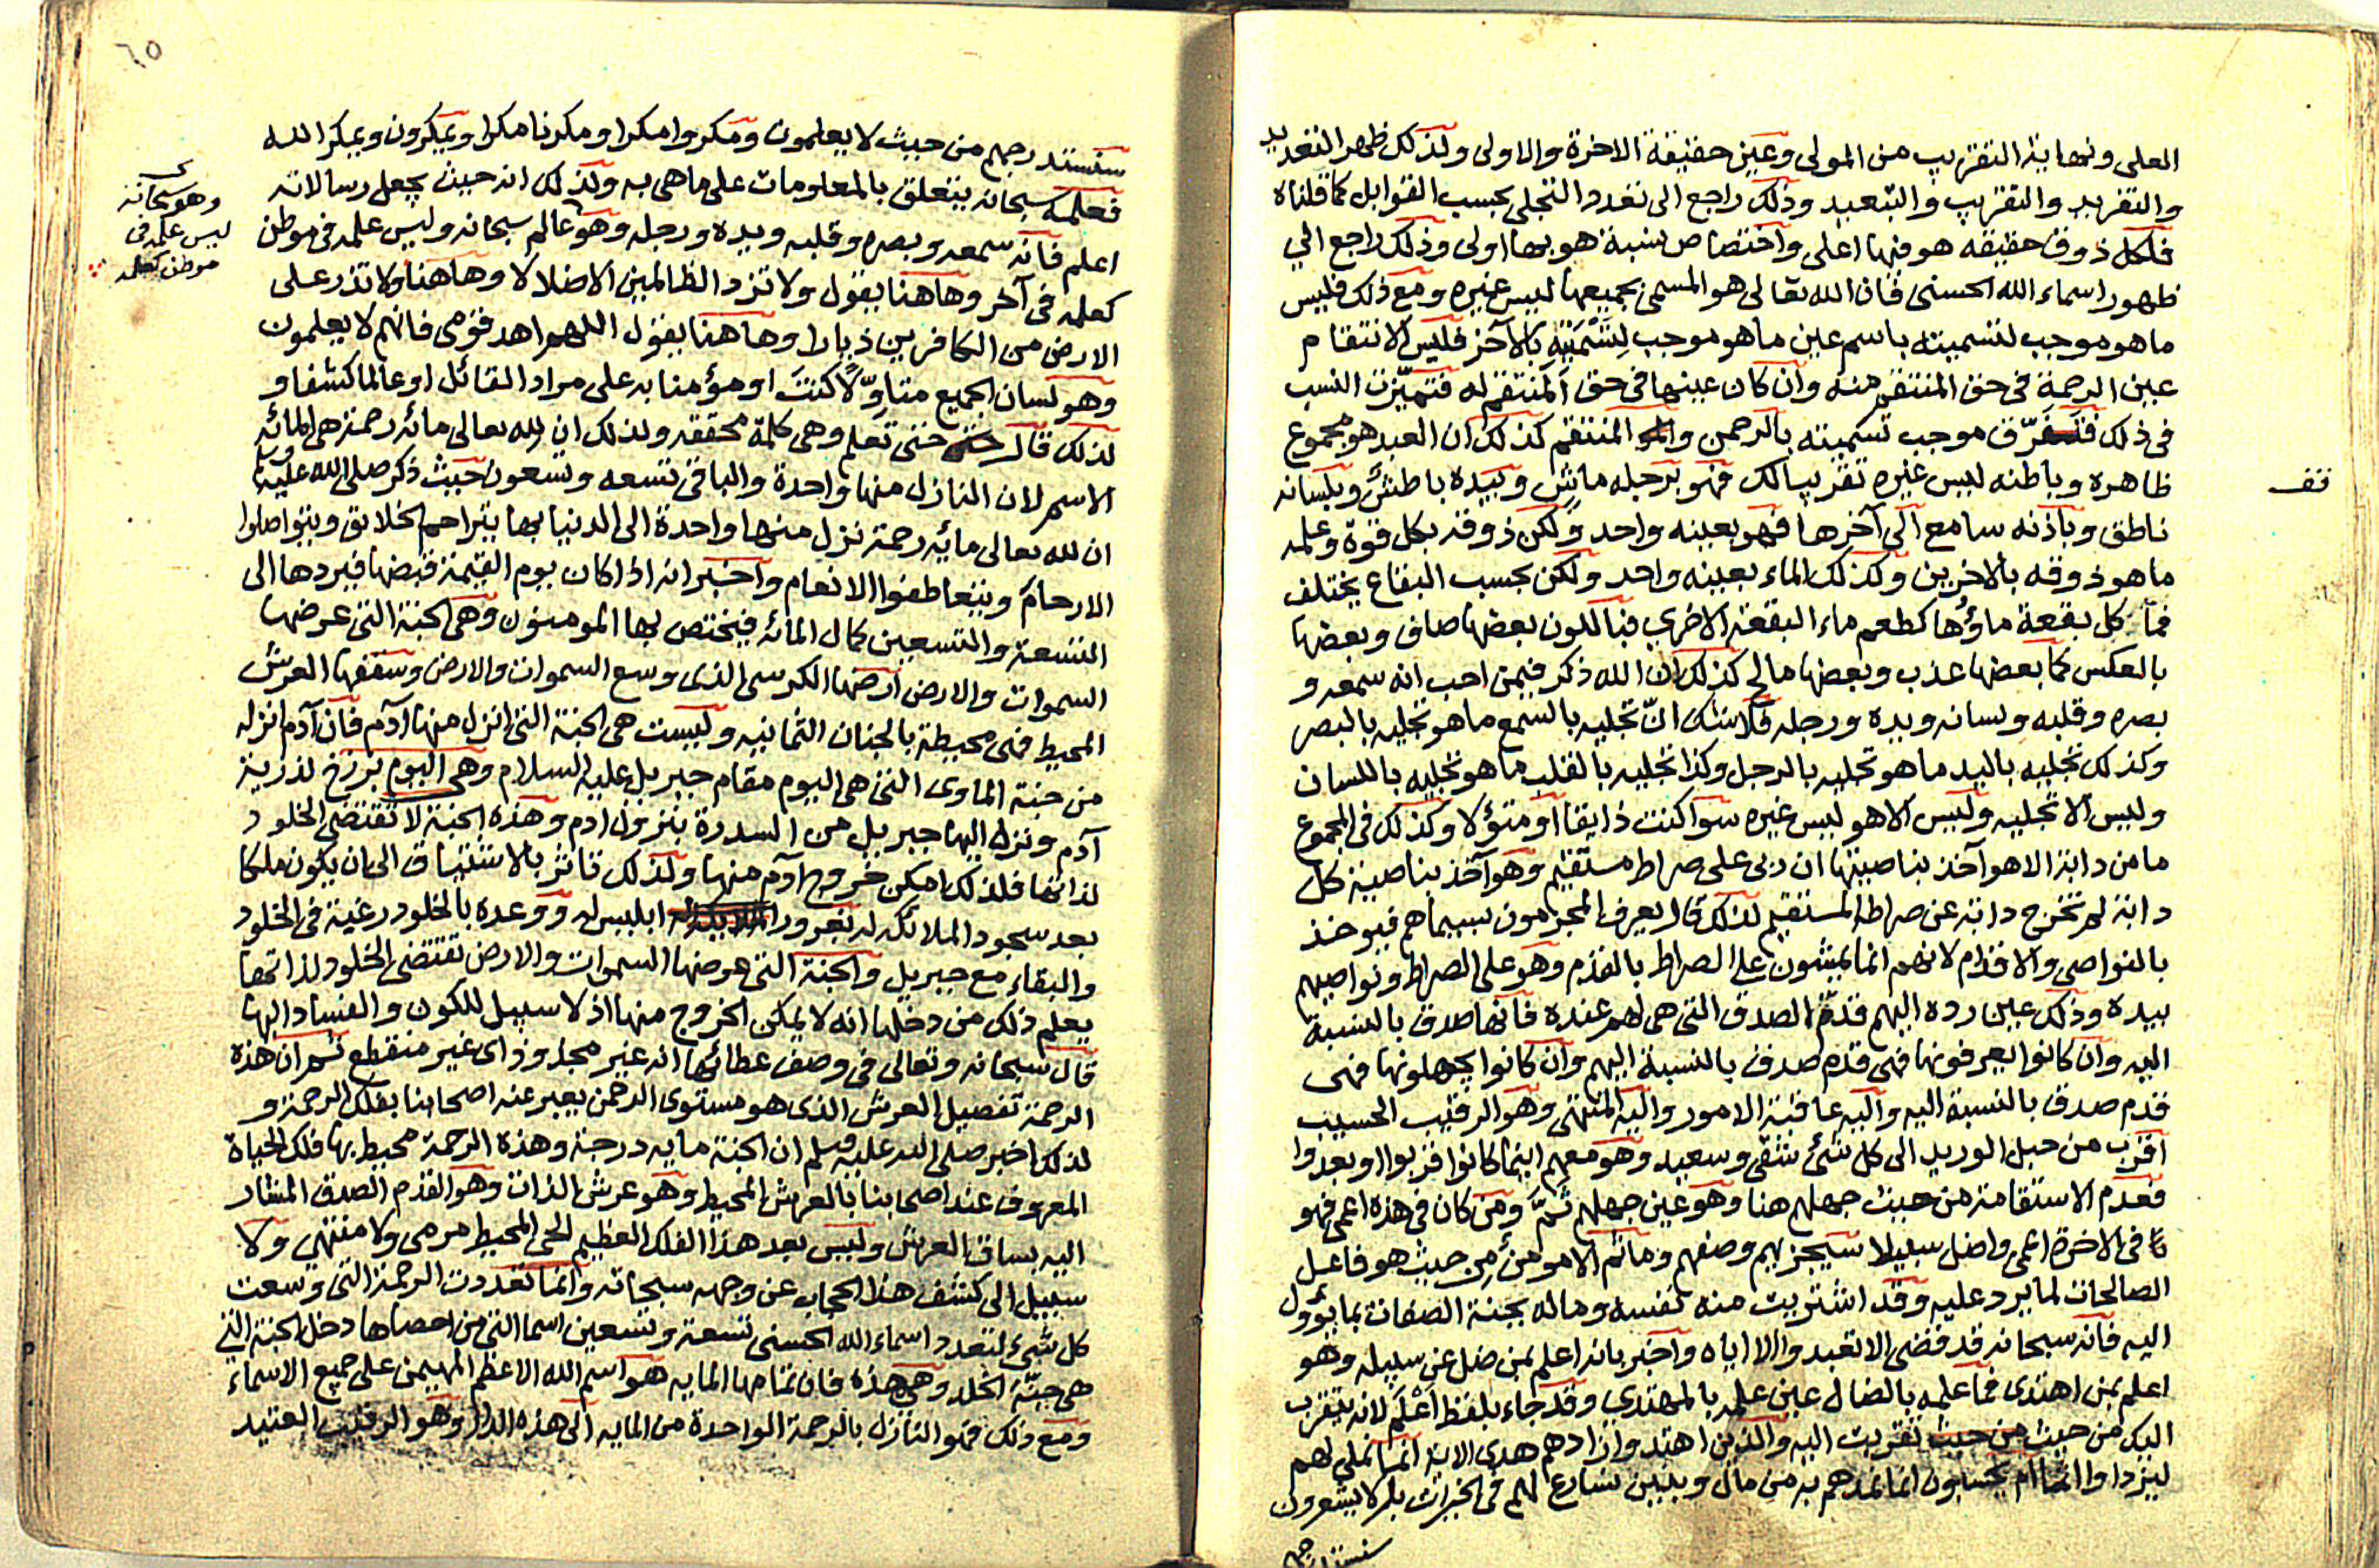 العلى ونهاية التقريب من المولى وعين حقيقة الاخرة والاولى ولذلك ظهر التعديد
والتفريد والتقريب والتبعيد وذلك راجع الى تعدد التجلى بحسب القوابل كما قلناه
فلكل ذوق حقيقه هو فيها اعلى واختصاص نسبة هو بها اولى وذلك راجع الي
ظهور اسماء الله الحسنى فان الله تعالى هو المسمى بجميعها ليس غيره ومع ذلك فليس
ما هو موجب لتسميته باسم عين ما هو موجب لتسميته بالآخر فليس الانتقام
عين الرحمة فى حق المنتقم منه وان كان عينها فى حق المنتقم له فتميّزت النسب
فى ذلك فتفرّق موجب تسميته بالرحمن والمنتقم كذلك ان العبد هو مجموع
ظاهره وباطنه ليس غيره تقريبا لك فهو برجله ماش وبيده باطش وبلسانه
ناطق وباذنه سامع الى آخرها فهو بعينه واحد ولكن ذوقه بكل قوة وعلمه
ما هو ذوقه بالاخرين وكذلك الماء بعينه واحد ولكن بحسب البقاع يختلف
فما كل بقعة ماؤها كطعم ماء البقعة الاخرى فباللون بعضها صاف وبعضها
بالعكس كما بعضها عذب وبعضها مالح كذلك ان الله ذكر فيمن احب انه سمعه و
بصره وقلبه ولسانه ويده ورجله فلا شك انّ تجليه بالسمع ما هو تجليه بالبصر
وكذلك تجليه باليد ما هو تجليه بالرجل وكذا تجليه بالقلب ما هو تجليه باللسان
وليس الا تجليه وليس الا هو ليس غيره سوا كنت ذايقا او متؤلا وكذلك فى المجموع
ما من دابة الا هو آخذ بناصيتها ان ربى على صراط مستقيم وهو آخذ بناصية كل
دابة لم تخرج دابة عن صراطه المستقيم لذلك قال يعرف المجرمون بسيماهم فيوخذ
بالنواصي والاقدام لانهم انما يمشون على الصراط بالقدم وهو على الصراط ونواصيهم
بيده وذلك عين رده اليهم قدم الصدق التى هى لهم عنده فانها صدق بالنسبة
اليه وان كانوا يعرفونها فهى قدم صدق بالنسبة اليهم وان كانوا يجهلونها فهى
قدم صدق بالنسبة اليه واليه عاقبة الامور واليه المنتهى وهو الرقيب الحسيب
اقرب من حبل الوريد الى كل شئ شقى وسعيد وهو معهم اينما كانوا قربوا او بعدوا
فعدم الاستقامة من حيث جهلهم هنا وهو عين جهلهم ثمّ ومن كان فى هذه اعمى فهو
فى الاخرة اعمى واضل سبيلا سيجزيهم وصفهم وما ثم الا مومن من حيث هو فاعل
الصالحات لما يرد عليه وقد اشتريت منه نفسه وماله بجنة الصفات بما يؤول
اليه فانه سبحانه قد قضى الا تعبدوا الا اياه واخبر بانه اعلم بمن ضل عن سبيله وهو
اعلم بمن اهتدى فما علمه بالضال عين علمه بالمهتدي وقد جاء بلفظ اعلم لانه يتقرب
اليك من حيث تقربت اليه والذين اهتدوا زادهم هدى الاية انما نملي لهم
ليزدادوا اثما ام يحسبون انما نمدهم به من مال وبنين نسارع لهم فى الخيرات بل لا يشعرون
تقف
٦٥
سنستدرجهم من حيث لا يعلمون ومكروا مكرا ومكرنا مكرا ويمكرون ويمكر الله
فعلمه سبحانه يتعلق بالمعلومات على ما هى به ولذلك انه حيث يجعل رسالاته
اعلم فانه سمعه وبصره وقلبه ويده ورجله وهو عالم سبحانه وليس علمه فى موطن
كعلمه فى آخر وهاهنا يقول ولا تزد الظالمين الا ضلالا وهاهنا ولا تذر على
الارض من الكافرين ديارا وهاهنا يقول اللهم اهد قومى فانهم لا يعلمون
وهو لسان الجميع متاوّلاً كنت او مؤمنا به على مراد القائل او عالما كشفا و
لذلك قال حتى تعلم وهى كلمة محققه ولذلك ان لله تعالى مائه رحمة هى المائه
الاسم لان النازل منها واحدة والباقى تسعه وتسعون حيث ذكر صلى الله عليه وسلم
ان لله تعالى مائة رحمة نزل منها واحدة الى الدنيا بها يتراحم الخلايق ويتواصلوا
الارحام ويتعاطفوا الانعام واخبر انه اذا كان يوم القيمة قبضها فيردها الى
التسعة والتسعين كمال المائه فيختص بها المومنون وهى الجنة التى عرضها
السموات والارض ارضها الكرسى الذى وسع السموات والارض وسقفها العرش
المحيط فهى محيطة بالجنان الثمانيه وليست هى الجنة التى انزل منها آدم فان آدم انزله
من جنة الماوى التى هى اليوم مقام جبريل عليه السلام وهى اليوم برزخ لذرية
آدم ونزل اليها جبريل من السدرة بنزول ادم وهذه الجنة لا تقتضى الخلود
لذاتها فلذلك امكن خروج آدم منها ولذلك تاثر بالاشتياق الى ان يكون ملكا
بعد سجود الملائكه له بغرور ابليس له ووعده بالخلود رغبة فى الخلود
والبقاء مع جبريل والجنة التى عرضها السموات والارض تقتضى الخلود لذاتها
يعلم ذلك من دخلها انه لا يمكن الخروج منها اذ لا سبيل للكون والفساد اليها
قال سبحانه وتعالى فى وصف عطائها انه غير مجذوذ اى غير منقطع ثم ان هذه
الرحمة تفصيل العرش الذى هو مستوى الرحمن يعبر عنه اصحابنا بفلك الرحمة و
لذلك اخبر صلى الله عليه وسلم ان الجنة مايه درجة وهذه الرحمة محيط بها فلك الحياة
المعروف عند اصحابنا بالعرش المحيط وهو عرش الذات وهو القدم الصدق المشار
اليه بساق العرش وليس بعد هذا الفلك العظيم الحى المحيط مرمى ولا منتهى ولا
سبيل الى كشف هذا الحجاب عن وجهه سبحانه وانما تعددت الرحمة التى وسعت
كل شئ لتعدد اسماء الله الحسنى تسعة وتسعين اسما التى من احصاها دخل الجنة التى
هى جنّة الخلد وهى هذه فان تمامها المايه هو اسم الله الاعظم المهيمن على جميع الاسماء
ومع ذلك فهو النازل بالرحمة الواحدة من المايه الى هذه الدار وهو الرقيب العتيد
وهو سبحانه
ليس علمه فى
موطن كعلمه